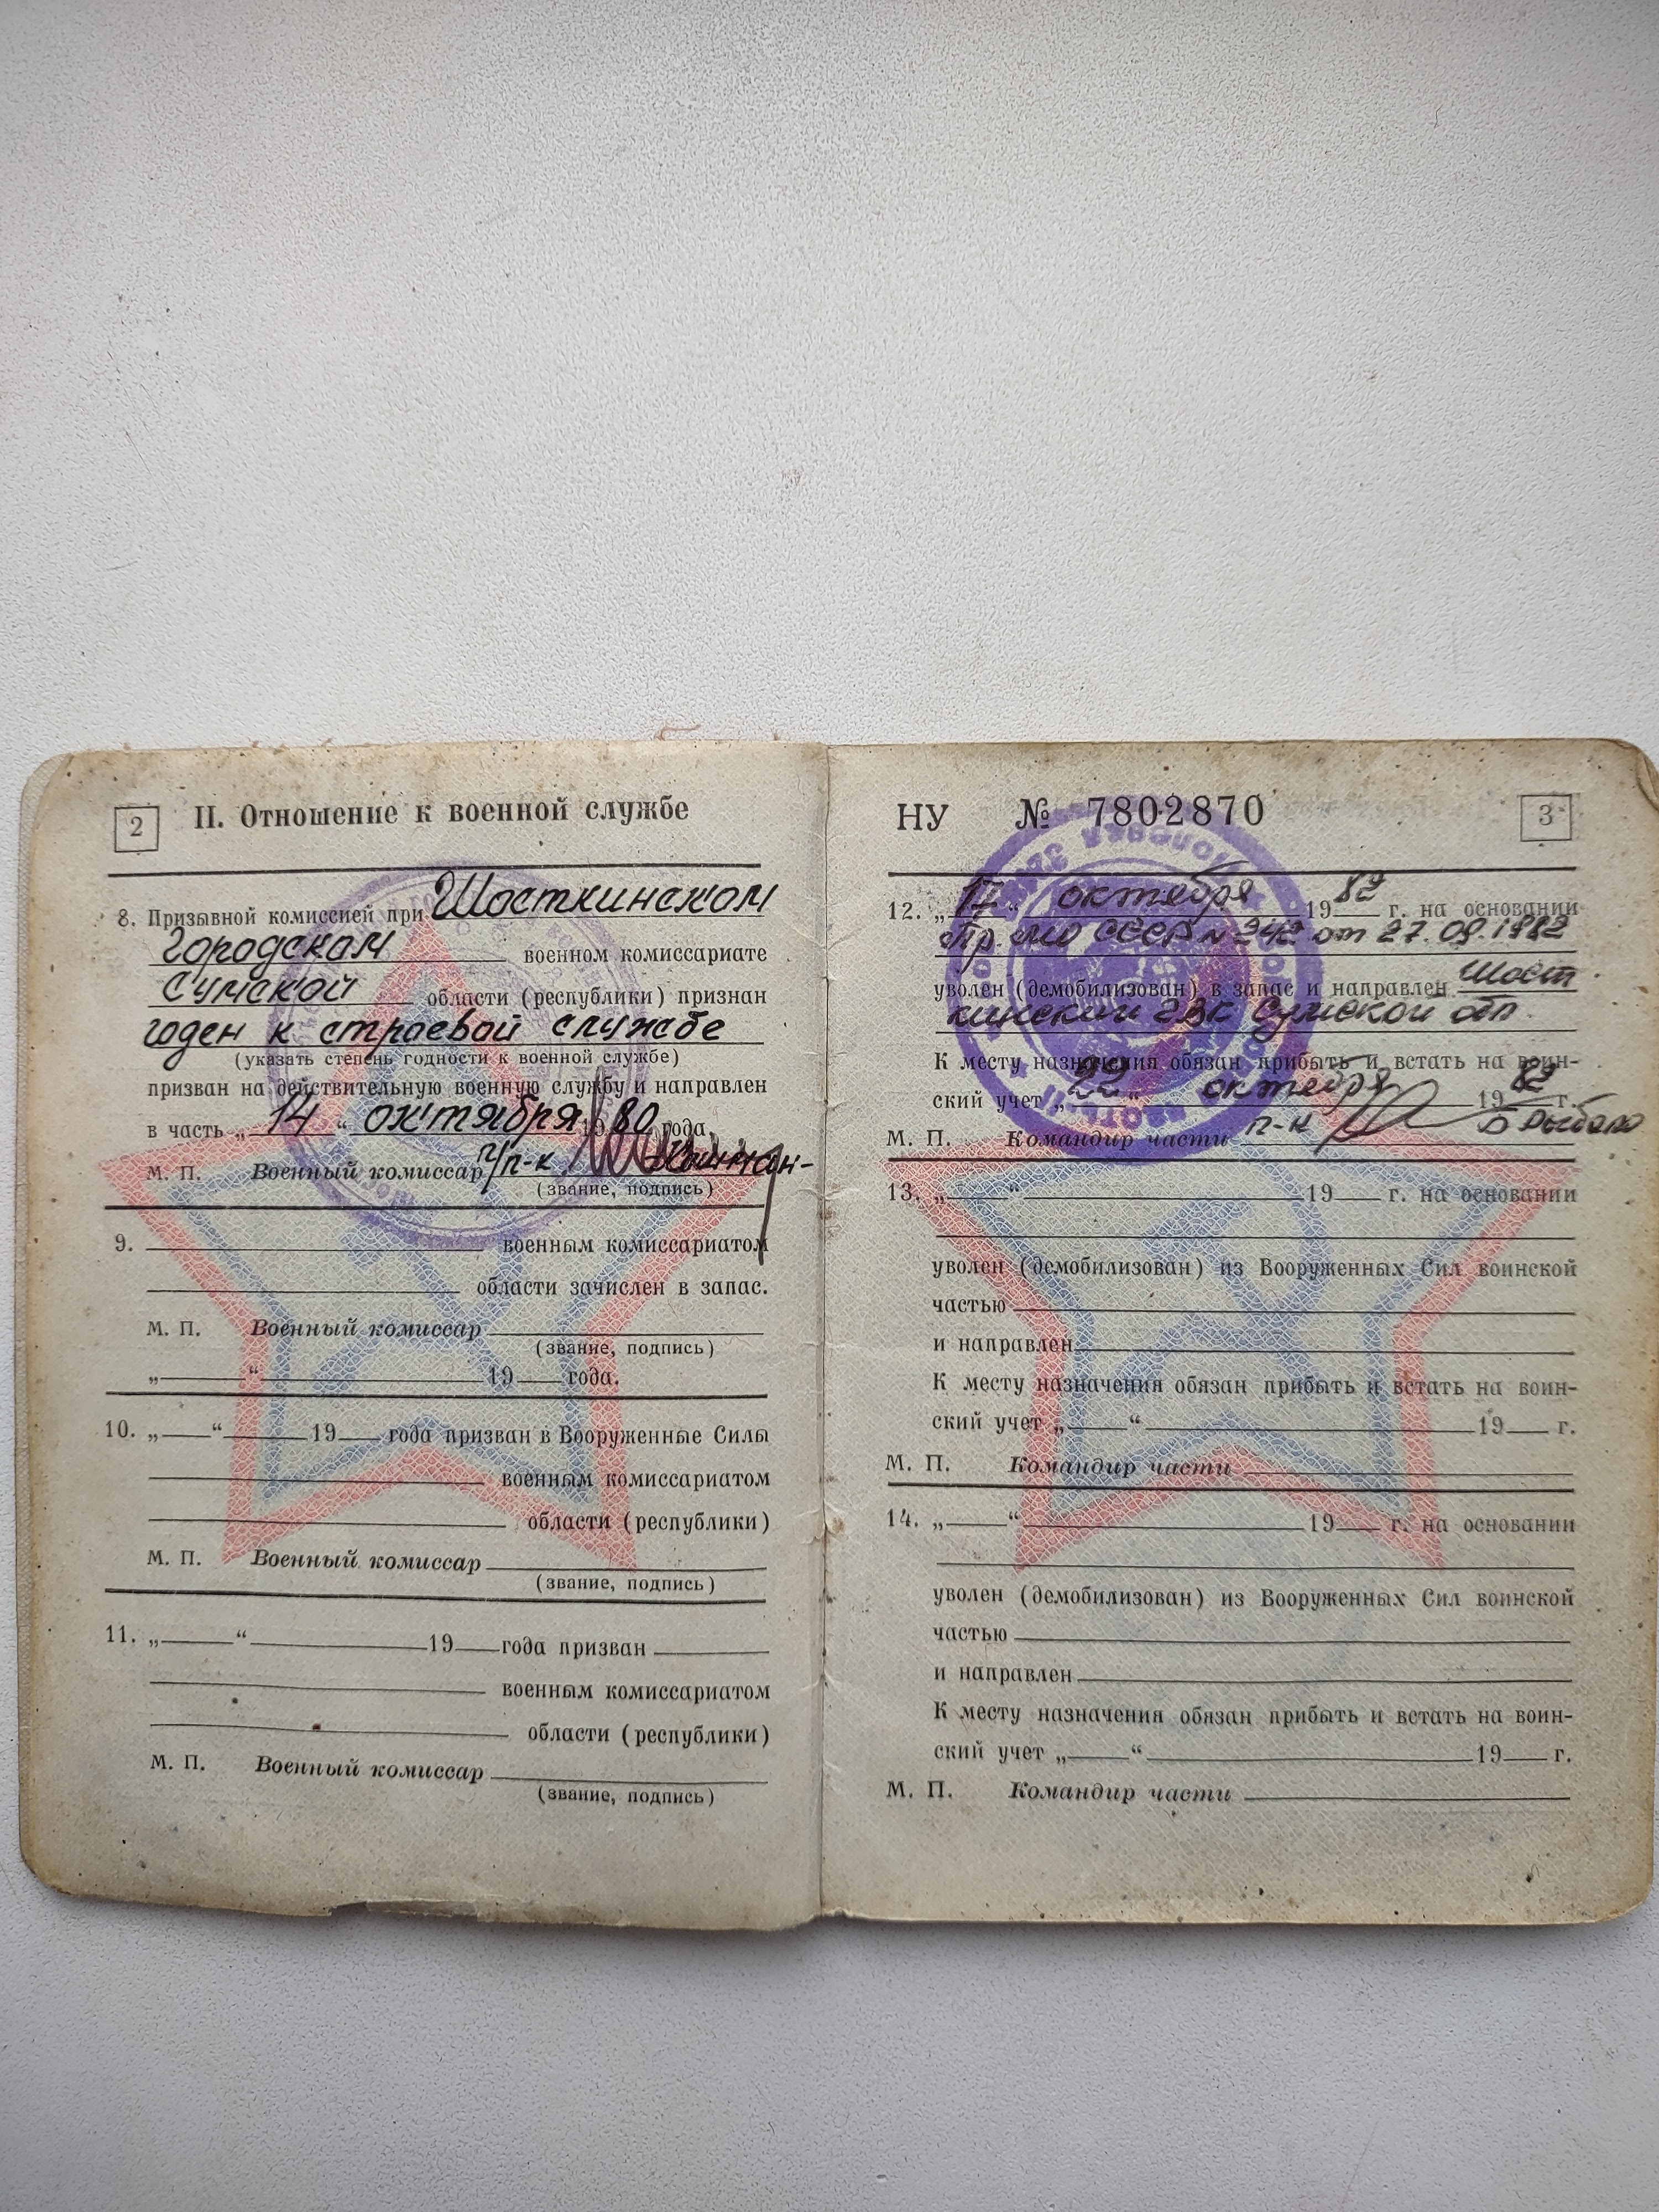 2
II. Отношение к военной службе
8. Призывной комиссией при Шосткинском
Городском военном комиссариате
Сумской области (республики) признан
годен к строевой службе
(указать степень годности к военной службе)
призван на действительную военную службу и направлен
в часть „14“ октября 1980 года
М. П. Военный комиссар п/п-к
(звание, подпись)
9. военным комиссариатом
области зачислен в запас.
М. П. Военный комиссар
(звание, подпись)
„ “ 19 года.
10. „ “ 19 года призван в Вооруженные Силы
военным комиссариатом
области (республики)
М. П. Военный комиссар
(звание, подпись)
11. „ “ 19 года призван
военным комиссариатом
области (республики)
М. П. Военный комиссар
(звание, подпись)
НУ № 7802870
3
12. „17“ октября 1982 г. на основании
Пр. МО СССР от 27.09.1982
уволен (демобилизован) в запас и направлен Шост
кинский ГВК Сумской обл.
К месту назначения обязан прибыть и встать на воин-
ский учет „22“ октября 1982 г.
М. П. Командир части п-к
13. „ “ 19 г. на основании
уволен (демобилизован) из Вооруженных Сил воинской
частью
и направлен
К месту назначения обязан прибыть и встать на воин-
ский учет „ “ 19 г.
М. П. Командир части
14. „ “ 19 г. на основании
уволен (демобилизован) из Вооруженных Сил воинской
частью
и направлен
К месту назначения обязан прибыть и встать на воин-
ский учет „ “ 19 г.
М. П. Командир части